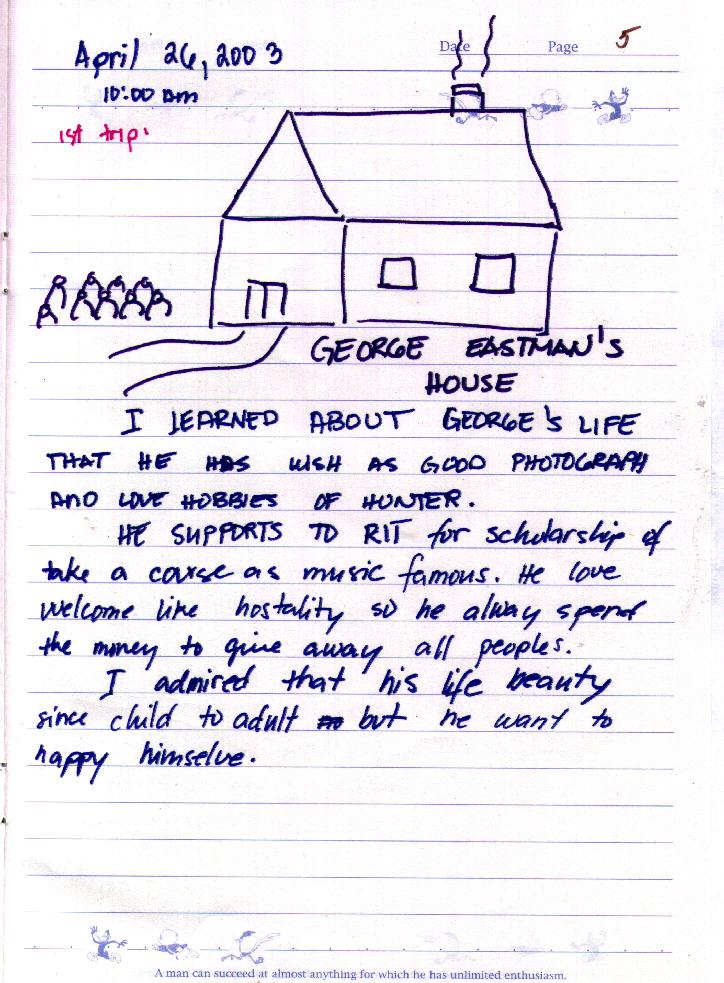 Date Page 5
April 26, 2003
10:00 am
1st trip:
GEORGE EASTMAN'S
HOUSE
I LEARNED ABOUT GEORGE'S LIFE
THAT HE HAS WISH AS GOOD PHOTOGRAPH
AND LOVE HOBBIES OF HUNTER.
HE SUPPORTS TO RIT for scholarship of
take a course as music famous. He love
welcome like hostality so he alway spend
the money to give away all peoples.
I admired that his life beauty
since child to adult but he want to
happy himselve.
A man can succeed at almost anything for which he has unlimited enthusiasm.